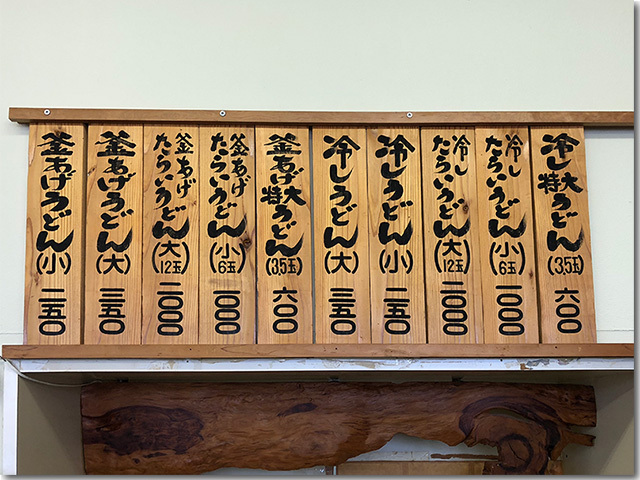 冷し特大うどん(3,5玉) 六〇〇
冷したらいうどん(小6玉) 一〇〇〇
冷したらいうどん(大12玉) 二〇〇〇
冷しうどん(小) 二五〇
冷しうどん(大) 三五〇
釜あげ特大うどん(3,5玉) 六〇〇
釜あげたらいうどん(小6玉) 一〇〇〇
釜あげたらいうどん(大12玉) 二〇〇〇
釜あげうどん(大) 三五〇
釜あげうどん(小) 二五〇